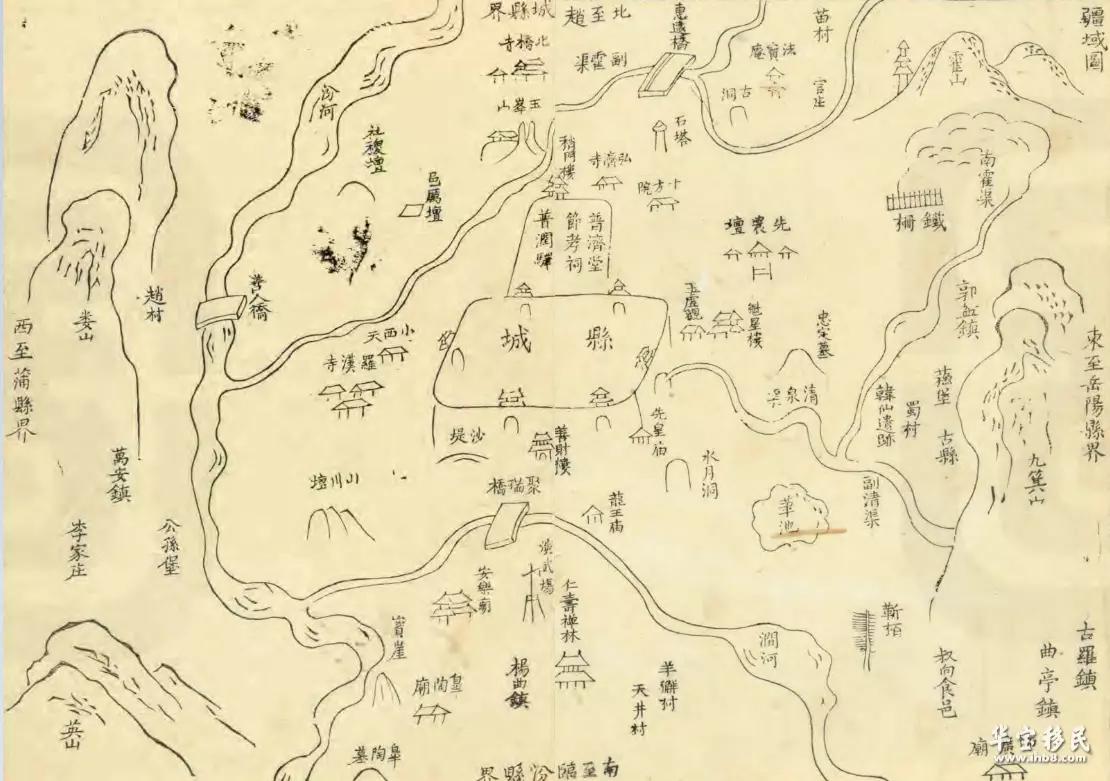 疆域圖
霍山
苗村
官庄
惠遠橋
北至趙
城縣界
副霍渠
北橋寺
玉峯山
法寶庵
古洞
石塔
弘濟寺
十方院
稍門樓
南霍渠
鐵柵
汾河
社稷壇
邑厲壇
普濟堂
節孝祠
普潤驛
先農壇
玉虛觀
魁星樓
忠定墓
郭缶鎮
善人橋
趙村
娄山
西至蒲縣界
小西天
羅漢寺
縣城
清泉渠
韓仙遺跡
蜀村
燕堡
古縣
東至岳陽縣界
九箕山
沙堤
善財樓
先皇庙
水月洞
副清渠
華池
萬安鎮
李家庄
公孫堡
山川壇
聚瑞橋
龍王庙
演武場
安樂廟
仁壽禅林
澗河
靳栢
叔向食邑
古羅鎮
曲亭鎮
英山
皋陶廟
楊曲鎮
羊獬村
天井村
皋陶墓
南至臨汾縣界
廟
华宝移民
www.ihb8.com